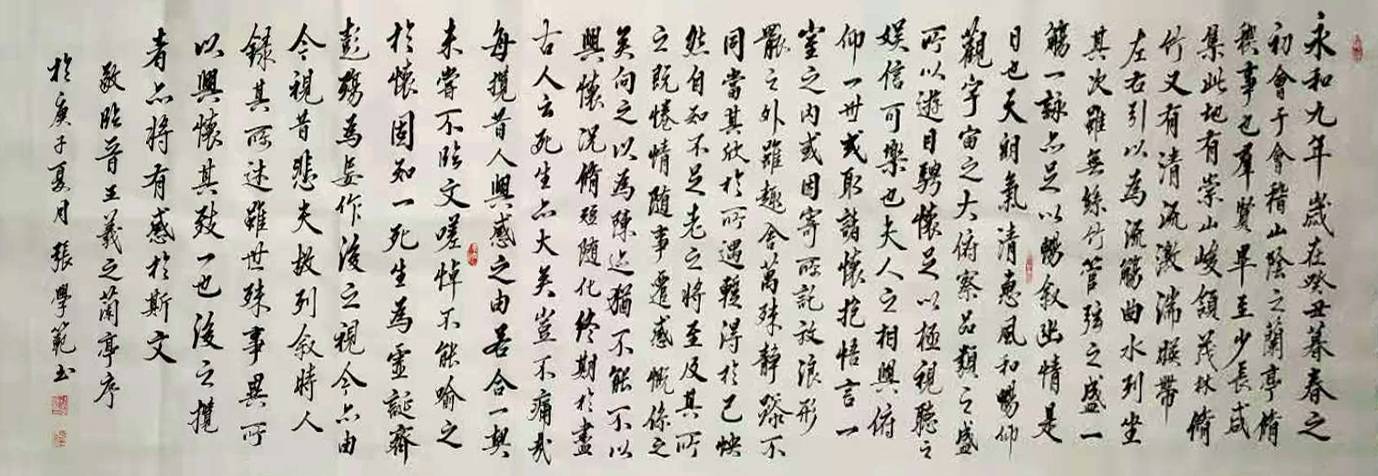 永和九年歲在癸丑暮春之
初會于會稽山陰之蘭亭脩
稧事也羣賢畢至少長咸
集此地有崇山峻領茂林脩
竹又有清流激湍暎帶
左右引以為流觴曲水列坐
其次雖無絲竹管弦之盛一
觴一詠亦足以暢敘幽情是
日也天朗氣清惠風和暢仰
觀宇宙之大俯察品類之盛
所以遊目騁懷足以極視聽之
娛信可樂也夫人之相與俯
仰一世或取諸懷抱悟言一
室之內或因寄所託放浪形
骸之外雖趣舍萬殊靜躁不
同當其欣於所遇蹔得於己怏
然自知不足老之將至及其所
之既惓情隨事遷感慨係之
矣向之以為陳迹猶不能不以
興懷況脩短隨化終期於盡
古人云死生亦大矣豈不痛哉
每攬昔人興感之由若合一契
未嘗不臨文嗟悼不能喻之
於懷固知一死生為虛誕齊
彭殤為妄作後之視今亦由
今視昔悲夫故列敘時人
錄其所述雖世殊事異所
以興懷其致一也後之攬
者亦將有感於斯文
敬臨晉王羲之蘭亭序
於庚子夏月張學範書